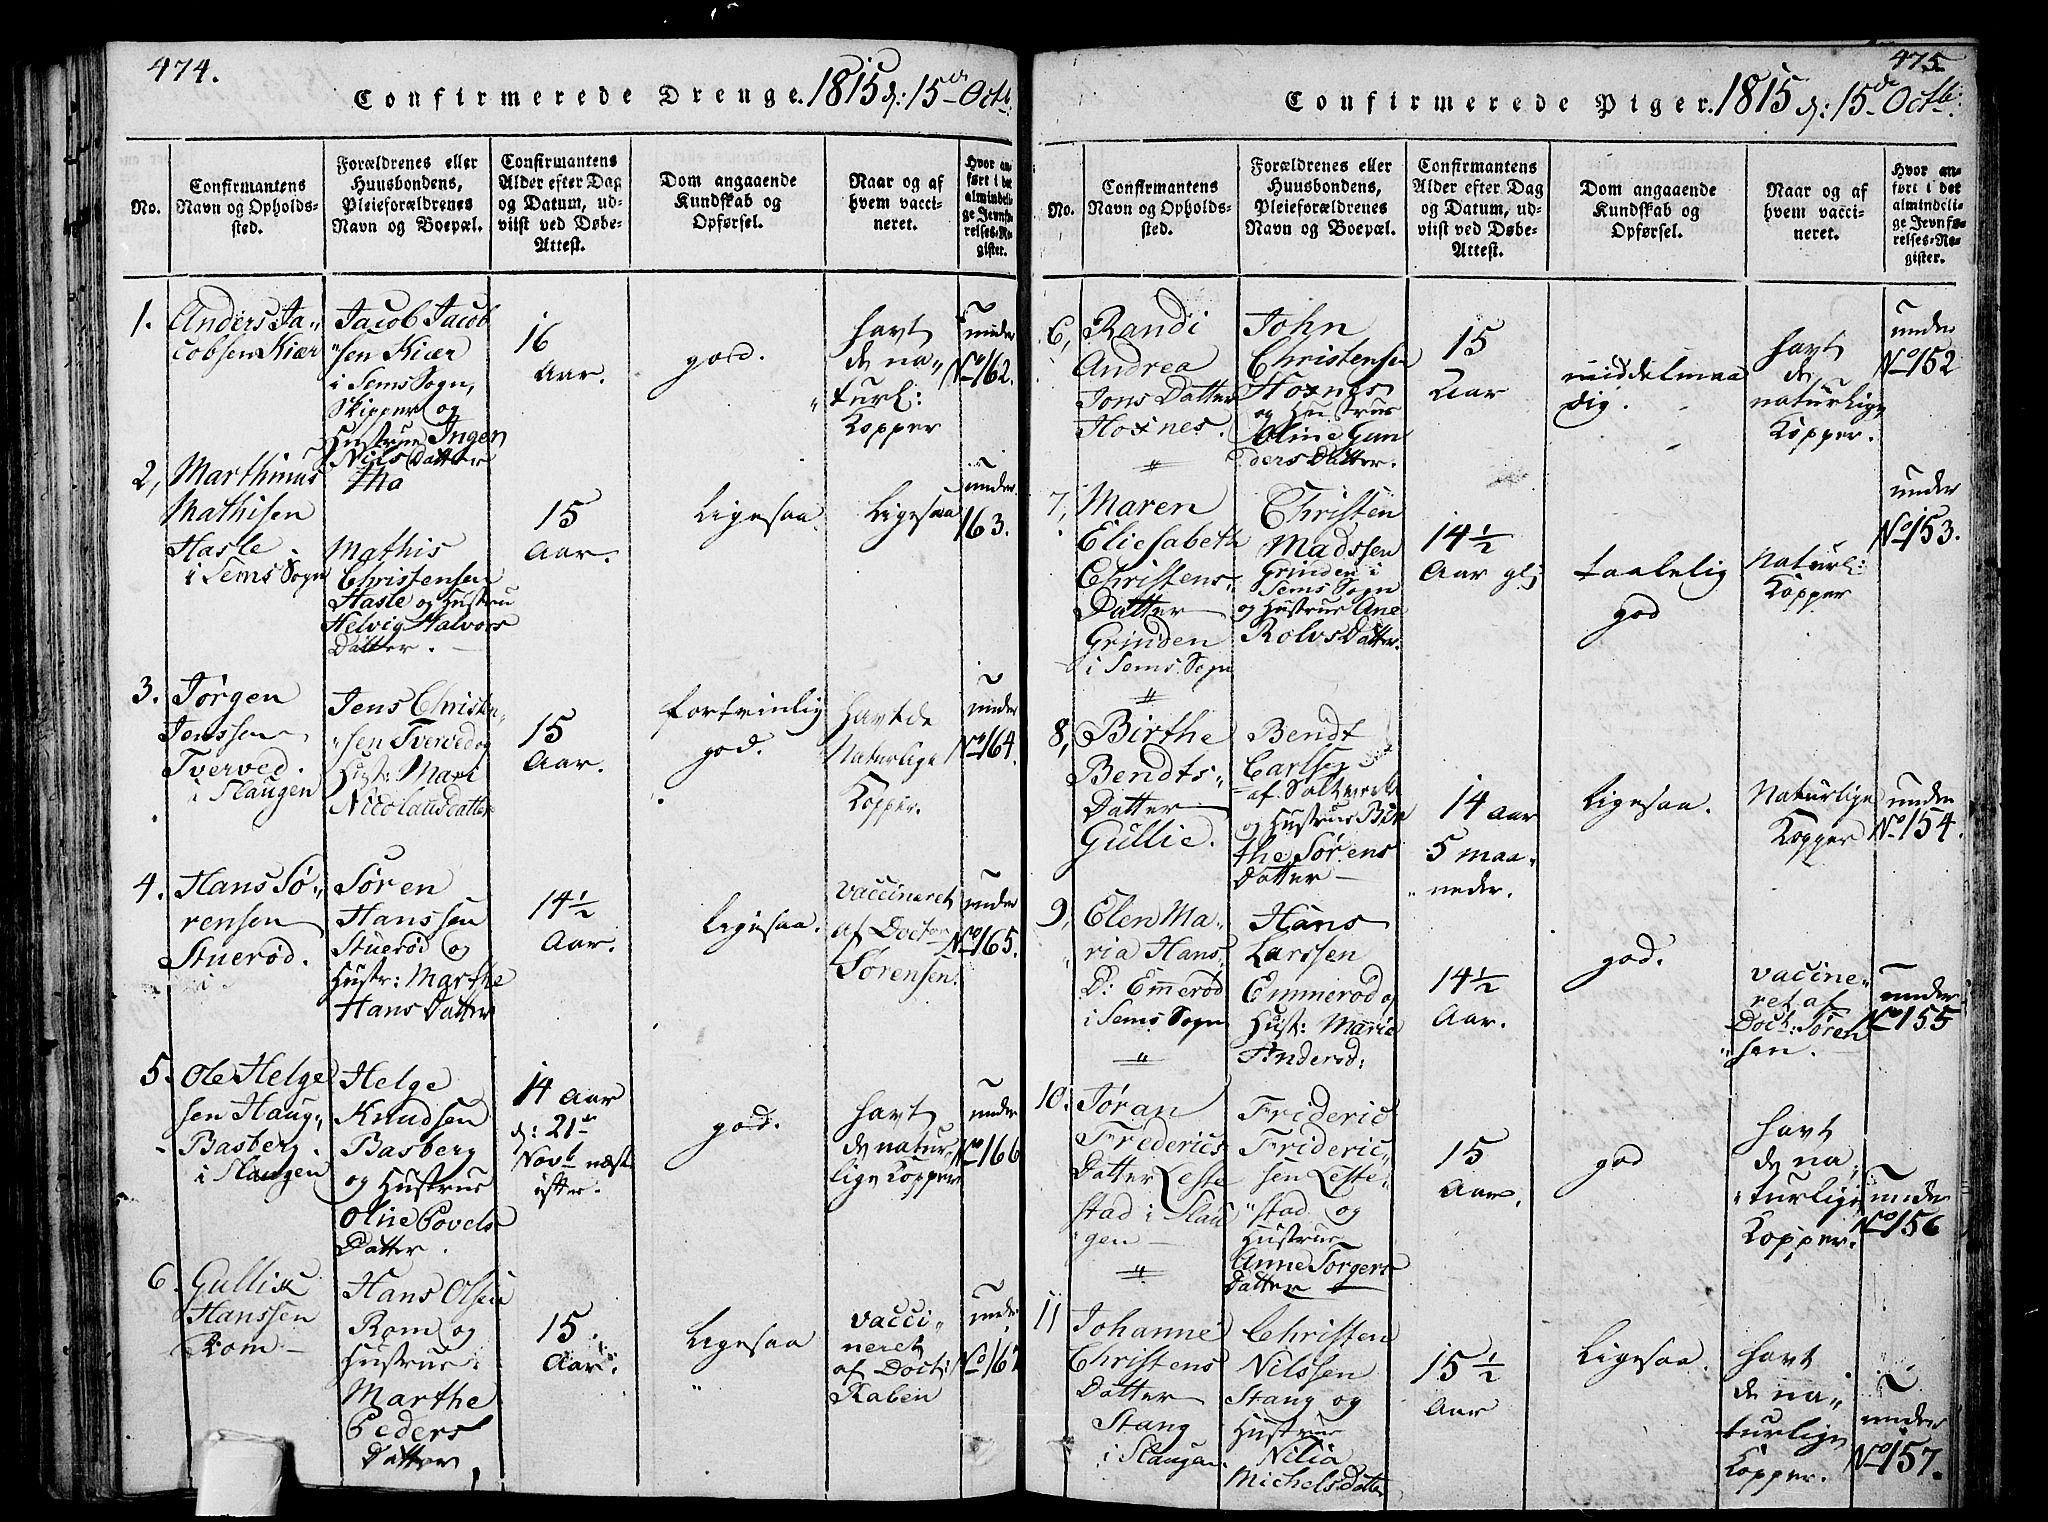 474.
Confirmerede Drenge. 1815 d: 15de Octb:
No.
Confirmantens
Navn og Opholds-
sted.
Forældrenes eller
Huusbondens,
Pleieforældrenes
Navn og Boepæl.
Confirmantens
Alder efter Dag
og Datum, ud-
viist ved Døbe-
Attest.
Dom angaaende
Kundskab og
Opførsel.
Naar og af
hvem vacci-
neret.
Hvor an-
ført i det
almindeli-
ge Jevnfø-
relses-Re-
gister.
1.
Anders Ja-
cobsen Kiær
Jacob Jacob
sen Kiær
i Sems Sogn,
Skipper og
Hustrue Ingen
Nils Datter
16
Aar.
god.
havt
de na„
turl:
Kopper
under
No 162.
2,
Marthinus
Mathisen
Hasle
i Sems Sogn
Ma
Mathis
Christensen
Hasle og Hustru
Helvig Halvors
Datter.
15
Aar.
Ligesaa.
Ligesaa
under
163.
3.
Jørgen
Jenssen
Tverved.
i Slaugen
Jens Christen„
sen Tverved og
Hust: Mari
Nicolausdatter
15
Aar.
fortrinlig
god.
havt de
Naturlige
Kopper.
under
No 164.
4.
Hans Sø„
rensen
Stuerød.
Søren
Hanssen
Stuerød og
Hustr: Marthe
Hans Datter
14 1/2
Aar.
Ligesaa.
vaccineret
af Doctor
Sørensen.
under
No 165.
5.
Ole Helge
sen Haug„
Basberg.
i Slaugen
Helge
Knudsen
Basberg
og Hustrue
Oline Povels
Datter.
14 Aar
d: 21de
Novb næst
efter.
god.
havt
de natur„
lige Kopper
under
No 166
6.
Gullik
Hanssen
Rom
Hans Olsen
Rom og
Hustrue
Marthe
Peders
Datter
15.
Aar.
Ligesaa
vacci„
neret
af Doct:
Raben
under
No 167
475
Confirmerede Piger. 1815 d: 15de Octb:
No.
Confirmantens
Navn og Opholds-
sted.
Forældrenes eller
Huusbondens,
Pleieforældrenes
Navn og Boepæl.
Confirmantens
Alder efter Dag
og Datum, ud-
viist ved Døbe-
Attest.
Dom angaaende
Kundskab og
Opførsel.
Naar og af
hvem vacci-
neret.
Hvor an-
ført i det
almindeli-
ge Jevnfø-
relses-Re-
gister.
6,
Randi
Andrea
Jons Datter
Hoxnes.
John
Christensen
Hoxnes
og Hustrue
Oline Gun
ders Datter.
15
Aar
middelmaa
dig.
havt
de
naturlige
Kopper.
under
No 152
7,
Maren
Eliesabeth
Christens
Datter
Grinden
i Sems Sogn
Christen
Madssen
Grinden i
Sems Sogn
og Hustrue Ane
Rolvs Datter.
14 1/2
Aar gl:
taalelig
god
Naturl:
Kopper
under
No 153.
8,
Birthe
Bendts„
Datter
Gullie.
Bendt
Carlsen
af Saltværk
og Hustrue Bir
the Sørens
Datter
14 Aar
5 maa„
neder.
Ligesaa.
Naturlige
Kopper
under
No 154.
9,
Elen Ma„
ria Hans„
D: Emmerød
i Sems Sogn
Hans
Larssen
Emmerød og
Hust: Marie
Andersd:
14 1/2
Aar.
god.
vacine„
ret af
Doct: Søren
sen.
under
No 155
10.
Jøran
Frederics
Datter Leste
stad i Slau
gen
Frideric
Frideric„
sen Leste„
stad og
Hustrue
Anne Torgers
Datter
15
Aar.
god
havt
de na„
turlige
Kopper.
under
No 156
11
Johanne
Christens
Datter
Stang
i Slaugen.
Christen
Nilssen
Stang og
Hustrue
Nilia
Michelsdatter
15 1/2
Aar
Ligesaa.
havt
de na„
turlige
Kopper.
under
No 157.